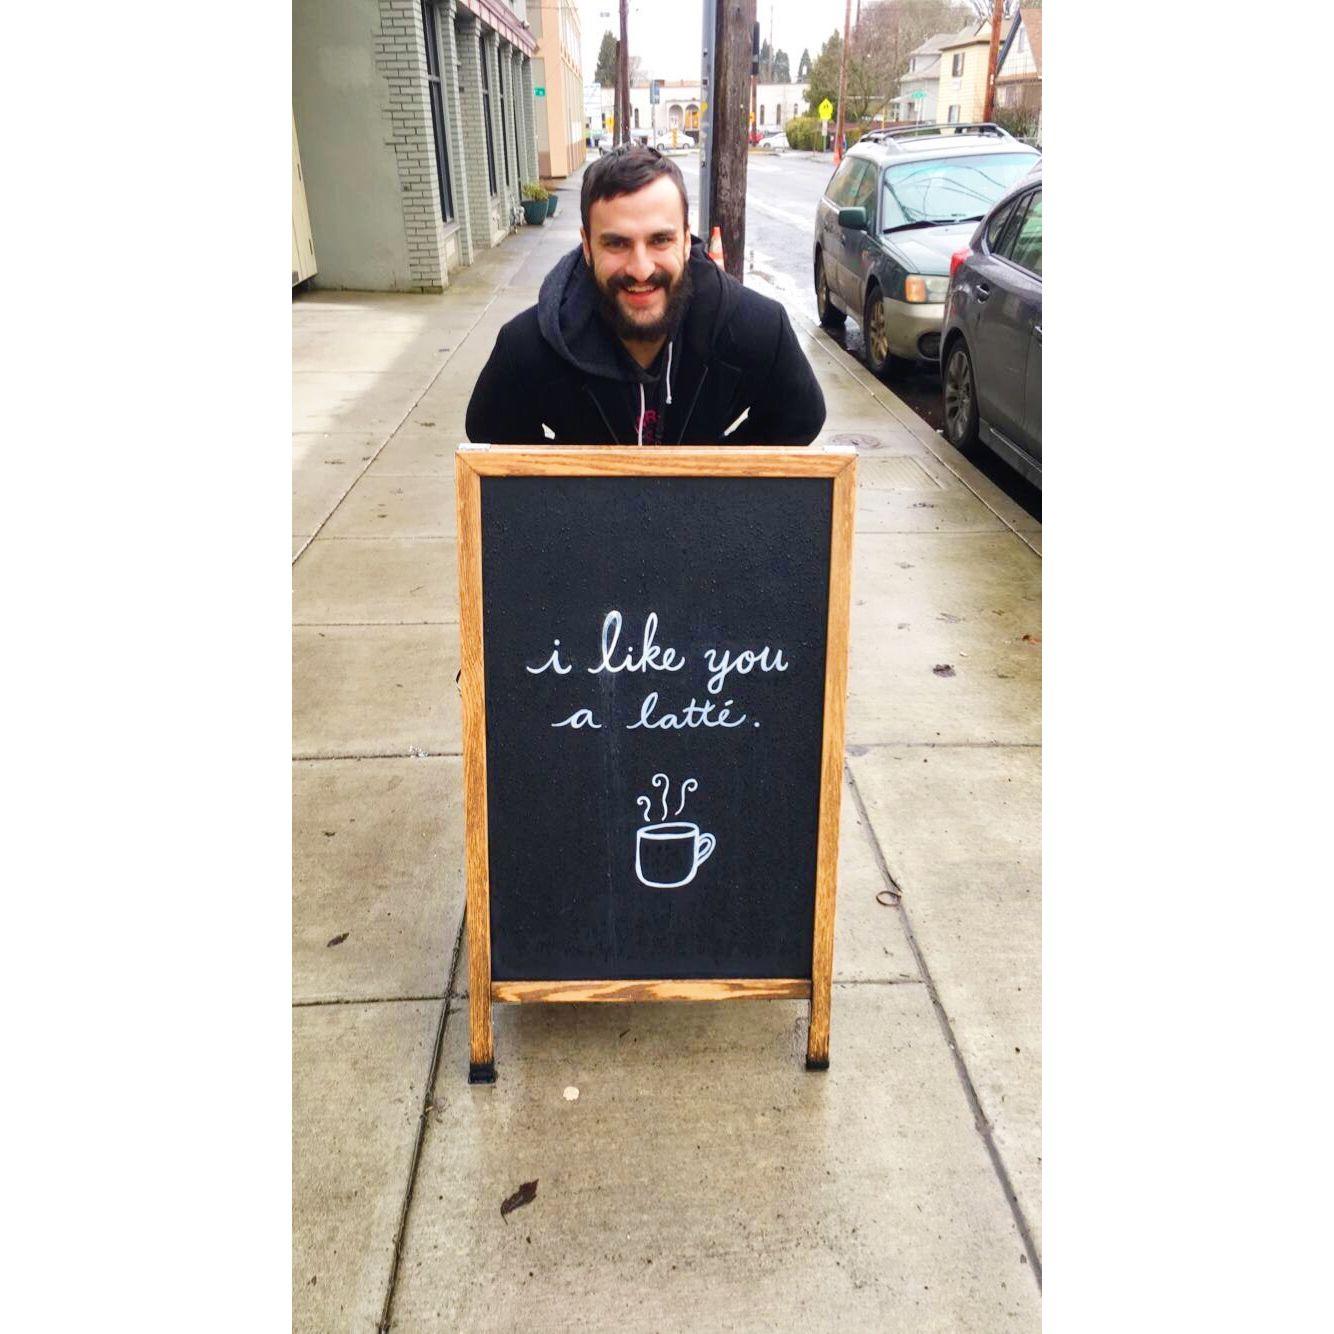 i like you
a latté.